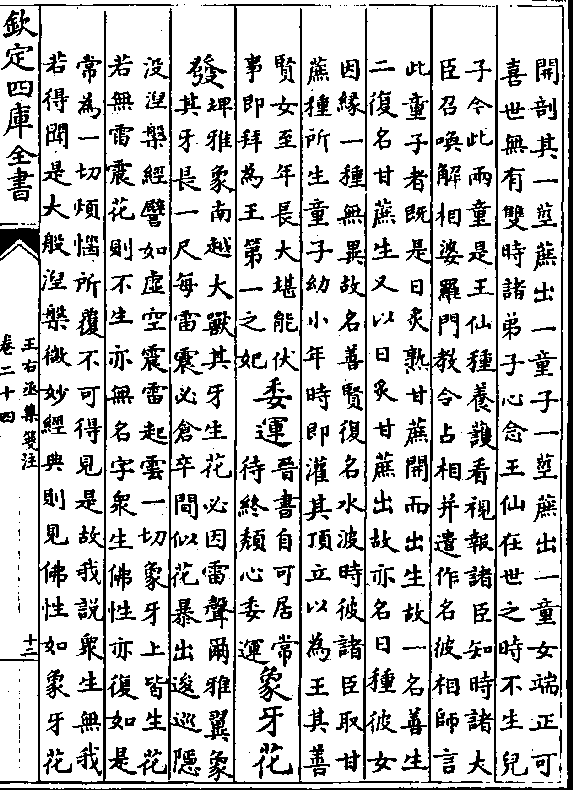 開剖其一莖蔗出一童子一莖蔗出一童女端正可
喜世無有雙時諸弟子心念王仙在世之時不生兒
子今此兩童是王仙種養護看視報諸臣知時諸大
臣召喚解相婆羅門教令占相并遣作名彼相師言
此童子者既是日炙熟甘蔗開而出生故一名善生
二復名甘蔗生又以日炙甘蔗出故亦名日種彼女
因緣一種無異故名善賢復名水波時彼諸臣取甘
蔗種所生童子幼小年時即灌其頂立以為王其善
賢女至年長大堪能伏
事即拜為王第一之妃
委運
晉書自可居常
待終頽心委運
象牙花
發
埤雅象南越大獸其牙生花必因雷聲爾雅翼象
其牙長一尺每雷震必倉卒間似花暴出逡巡隱
没涅槃經譬如虛空震雷起雲一切象牙上皆生花
若無雷震花則不生亦無名字衆生佛性亦復如是
常為一切煩惱所覆不可得見是故我說衆生無我
若得聞是大般涅槃微妙經典則見佛性如象牙花
欽定四庫全書
王右丞集箋注
卷二十四
十二